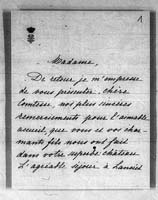 1
Madame,
De retour, je m'empresse
de vous présenter, chère
Comtesse, nos plus sincères
remerciements pour l'aimable
accueil, que vous et vos char-
mants fils nous ont fait
dans votre superbe château
L'agréable séjour à